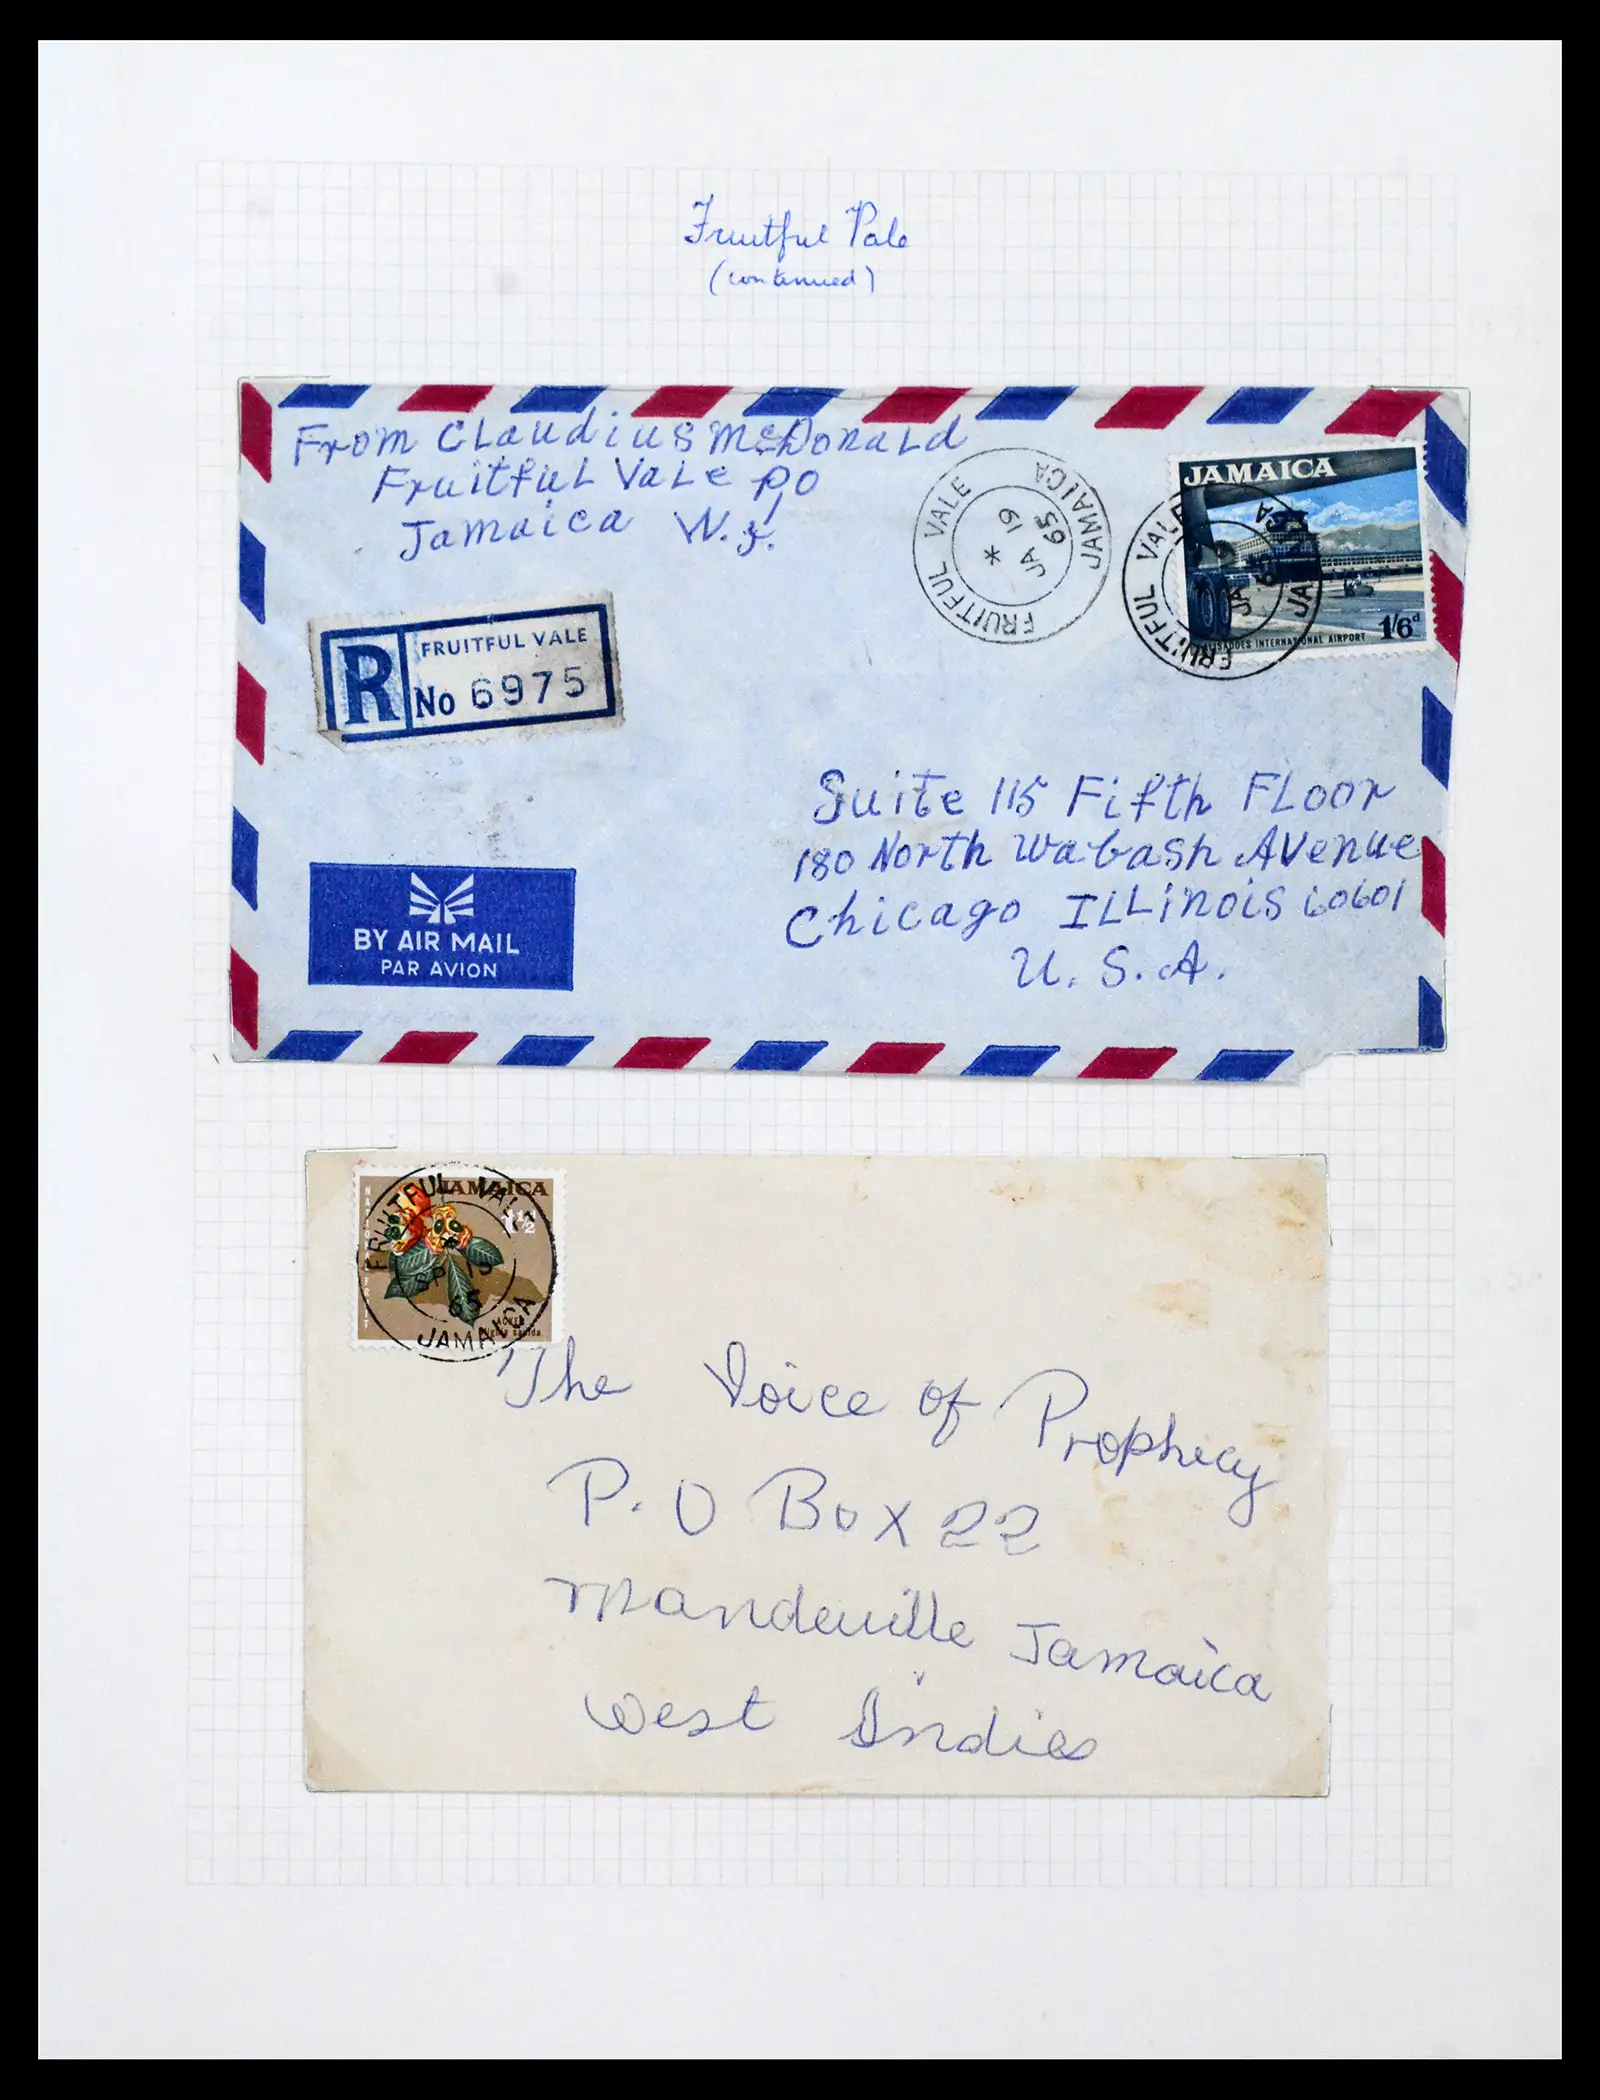 Fruitful Vale
(continued)
From Claudius McDonald
Fruitful Vale P.O
Jamaica W.I.
FRUITFUL VALE JAMAICA
* JA 19
65
JAMAICA
1/6d
PALISADOES INTERNATIONAL AIRPORT
FRUITFUL VALE JAMAICA
JA 19
65
R
FRUITFUL VALE
No 6975
Suite 115 Fifth Floor
180 North Wabash Avenue
Chicago Illinois 60601
U. S. A.
BY AIR MAIL
PAR AVION
JAMAICA
1½
NATIONAL FRUIT
ACKEE
Blighia sapida
FRUITFUL VALE
SP 13
65
JAMAICA
The Voice of Prophecy
P. O Box 22
Mandeville Jamaica
West Indies